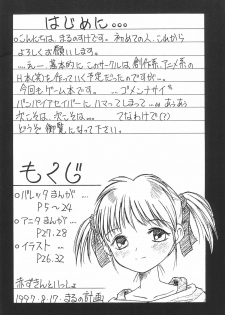 はじめに・・・
こんにちは、まるのすけです。初めての人、これから
よろしくお願いします。
・・・えー、基本的に このサークルは創作系、アニメ系の
H本(笑)を作っていく予定だったのですが・・・
今回もゲーム本です。・・・ゴメンナサイ
バンパイアセイバーに ハマッてしまって・・・
次こそは、次こそは・・・ てなわけで(?)
どうぞ御覧になって下さい。
もくじ
○バレッタまんが
P5〜24
○アニタまんが・・・
P27.28
○イラスト・・・
P26.32
赤ずきんといっしょ
1997.8.17. まるの計画